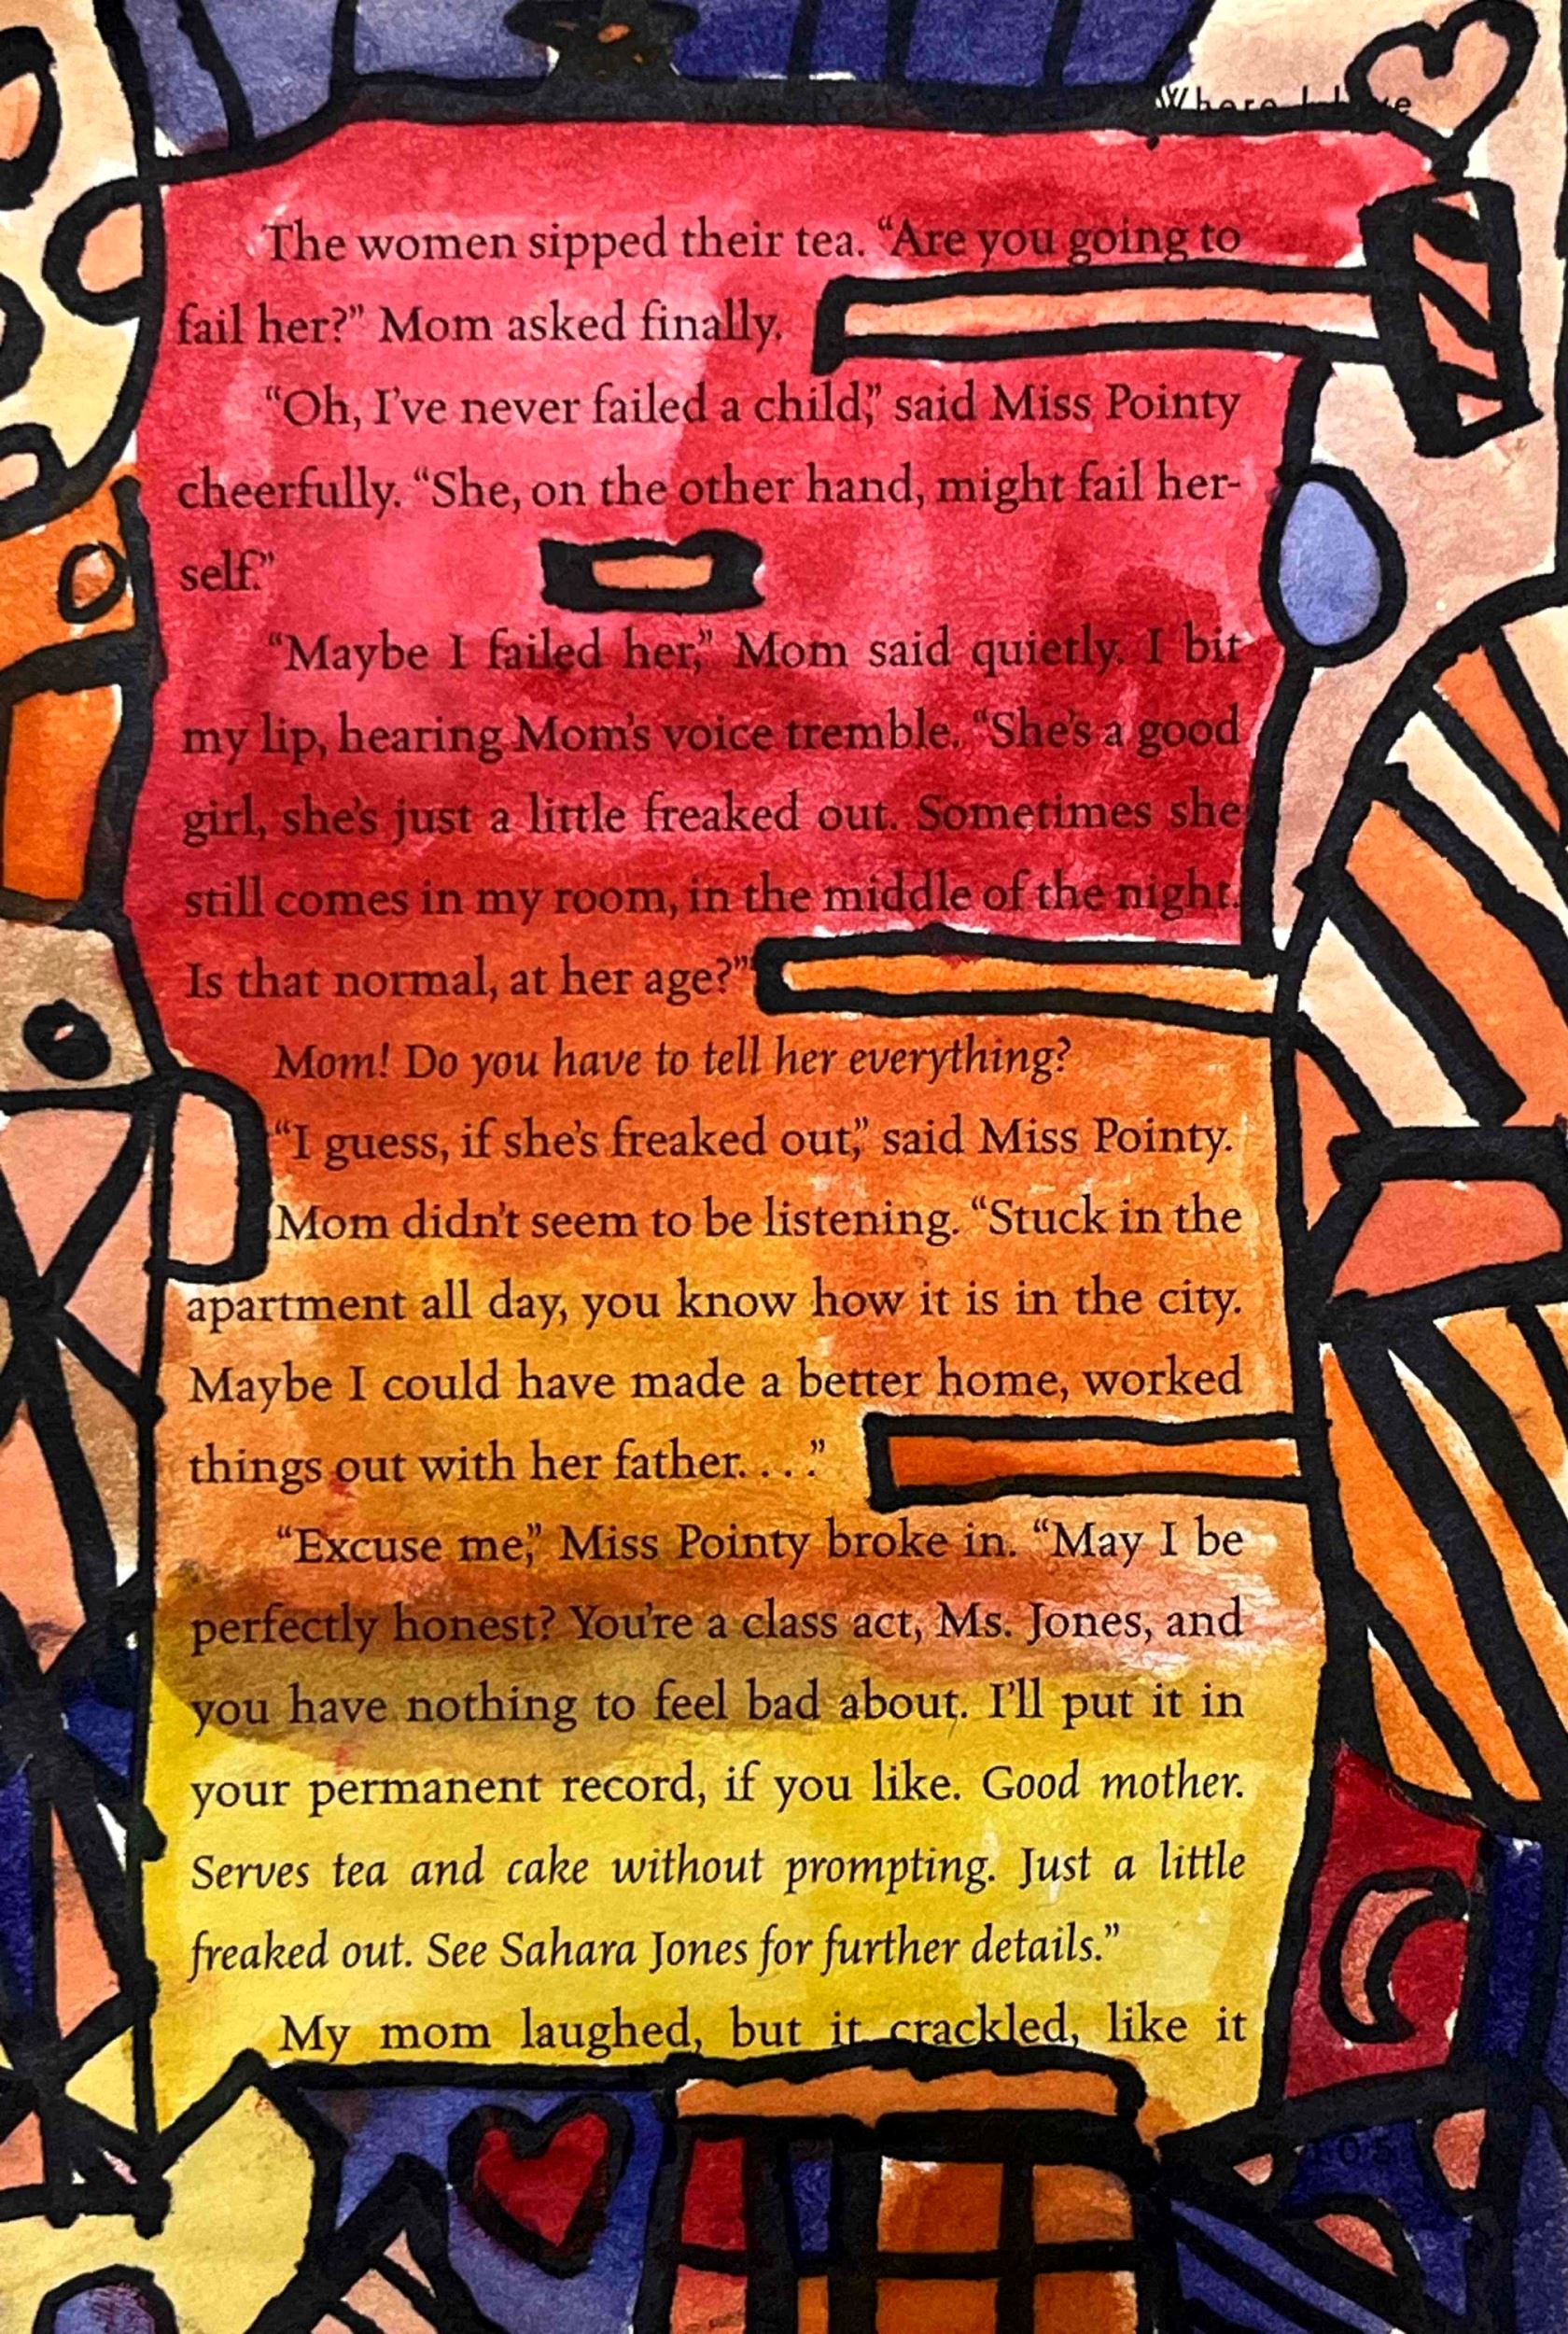 Where I Live
The women sipped their tea. “Are you going to
fail her?” Mom asked finally.
“Oh, I’ve never failed a child,” said Miss Pointy
cheerfully. “She, on the other hand, might fail her-
self.”
“Maybe I failed her,” Mom said quietly. I bit
my lip, hearing Mom’s voice tremble. “She’s a good
girl, she’s just a little freaked out. Sometimes she
still comes in my room, in the middle of the night.
Is that normal, at her age?”
Mom! Do you have to tell her everything?
“I guess, if she’s freaked out,” said Miss Pointy.
Mom didn’t seem to be listening. “Stuck in the
apartment all day, you know how it is in the city.
Maybe I could have made a better home, worked
things out with her father. . . .”
“Excuse me,” Miss Pointy broke in. “May I be
perfectly honest? You’re a class act, Ms. Jones, and
you have nothing to feel bad about. I’ll put it in
your permanent record, if you like. Good mother.
Serves tea and cake without prompting. Just a little
freaked out. See Sahara Jones for further details.”
My mom laughed, but it crackled, like it
105